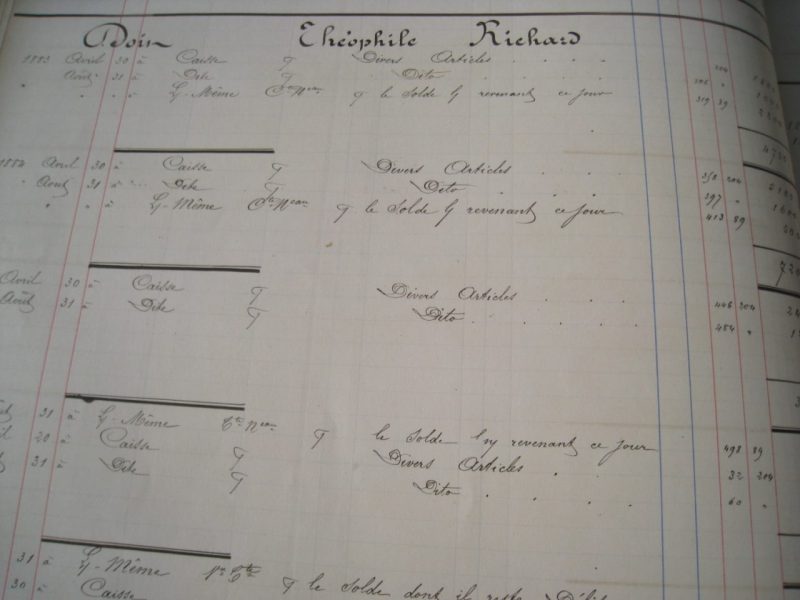 Doin Théophile Richard
1883 Avril 30 à Caisse Divers Articles 204
Août 31 à Dite Dito 206 "
" " à Lui-Même Cte Neau le Solde lui revenant ce jour 319 89
1884 Avril 30 à Caisse Divers Articles 358 204
" Août 31 à Dite Dito 397 "
" " à Lui-Même Cte Neau le Solde lui revenant ce jour 413 89
Avril 30 à Caisse Divers Articles 446 204
Août 31 à Dite Dito 484 "
31 à Lui-Même Cte Neau le Solde lui revenant ce jour 498 89
20 à Caisse Divers Articles 32 204
31 à Dite Dito 60 "
31 à Lui-Même Nv Cte le Solde dont il reste Débit
30 à Caisse